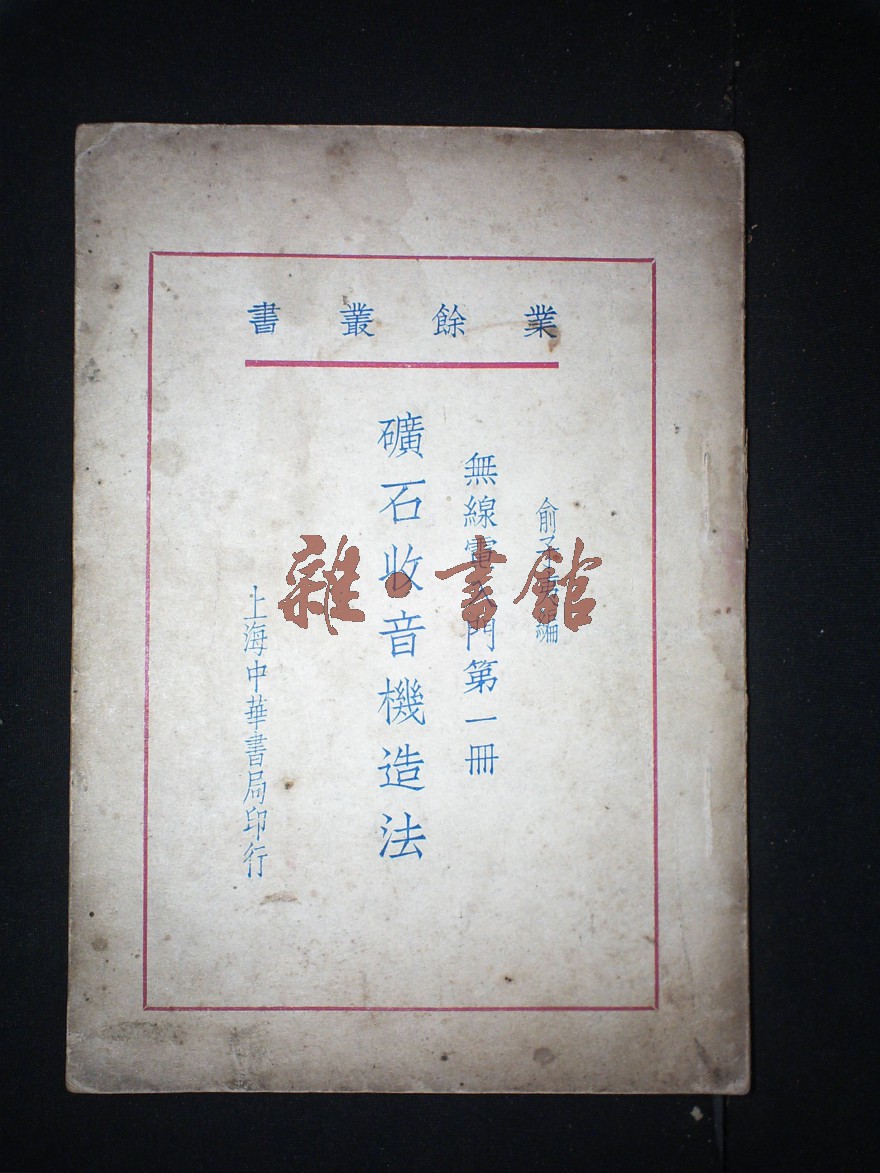 業餘叢書
俞子夷編
無線電入門第一冊
礦石收音機造法
上海中華書局印行
雜·書館